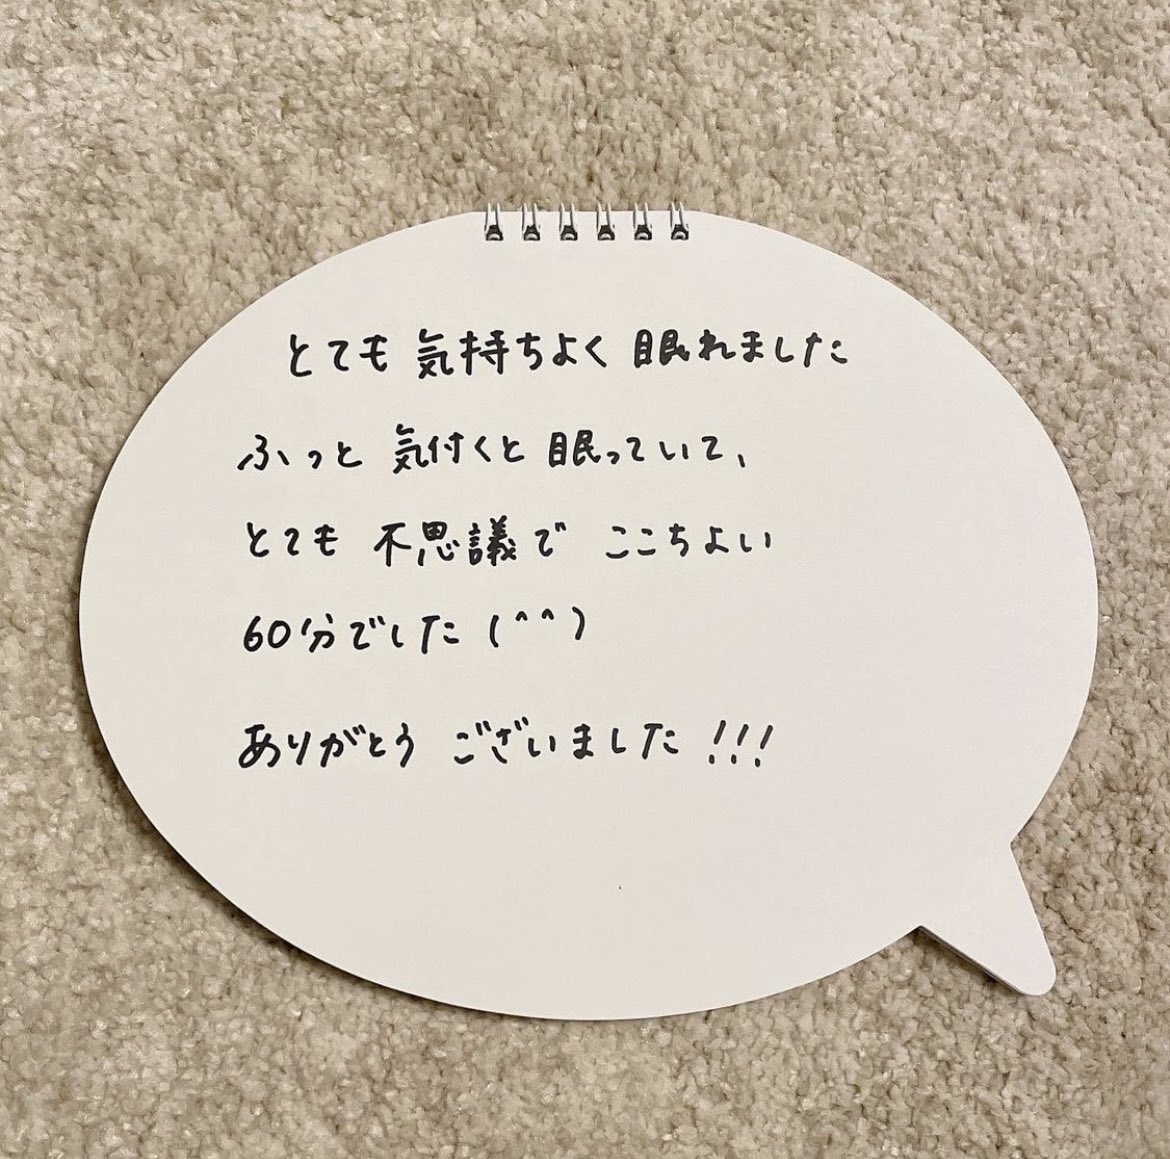 とても 気持ちよく 眠れました
ふっと 気付くと 眠っていて、
とても 不思議で ここちよい
60分でした (^^)
ありがとう ございました !!!